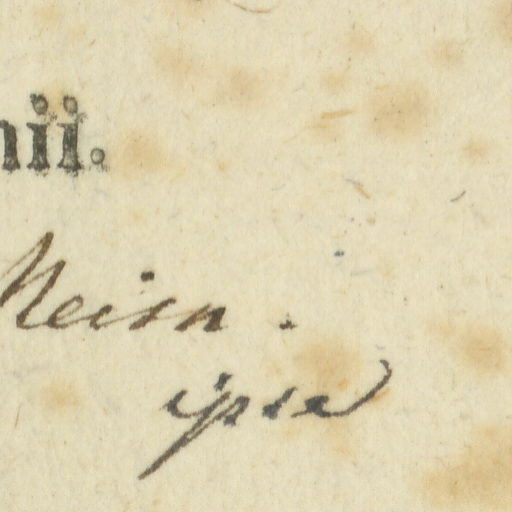 nii.
Meisn.
ipse